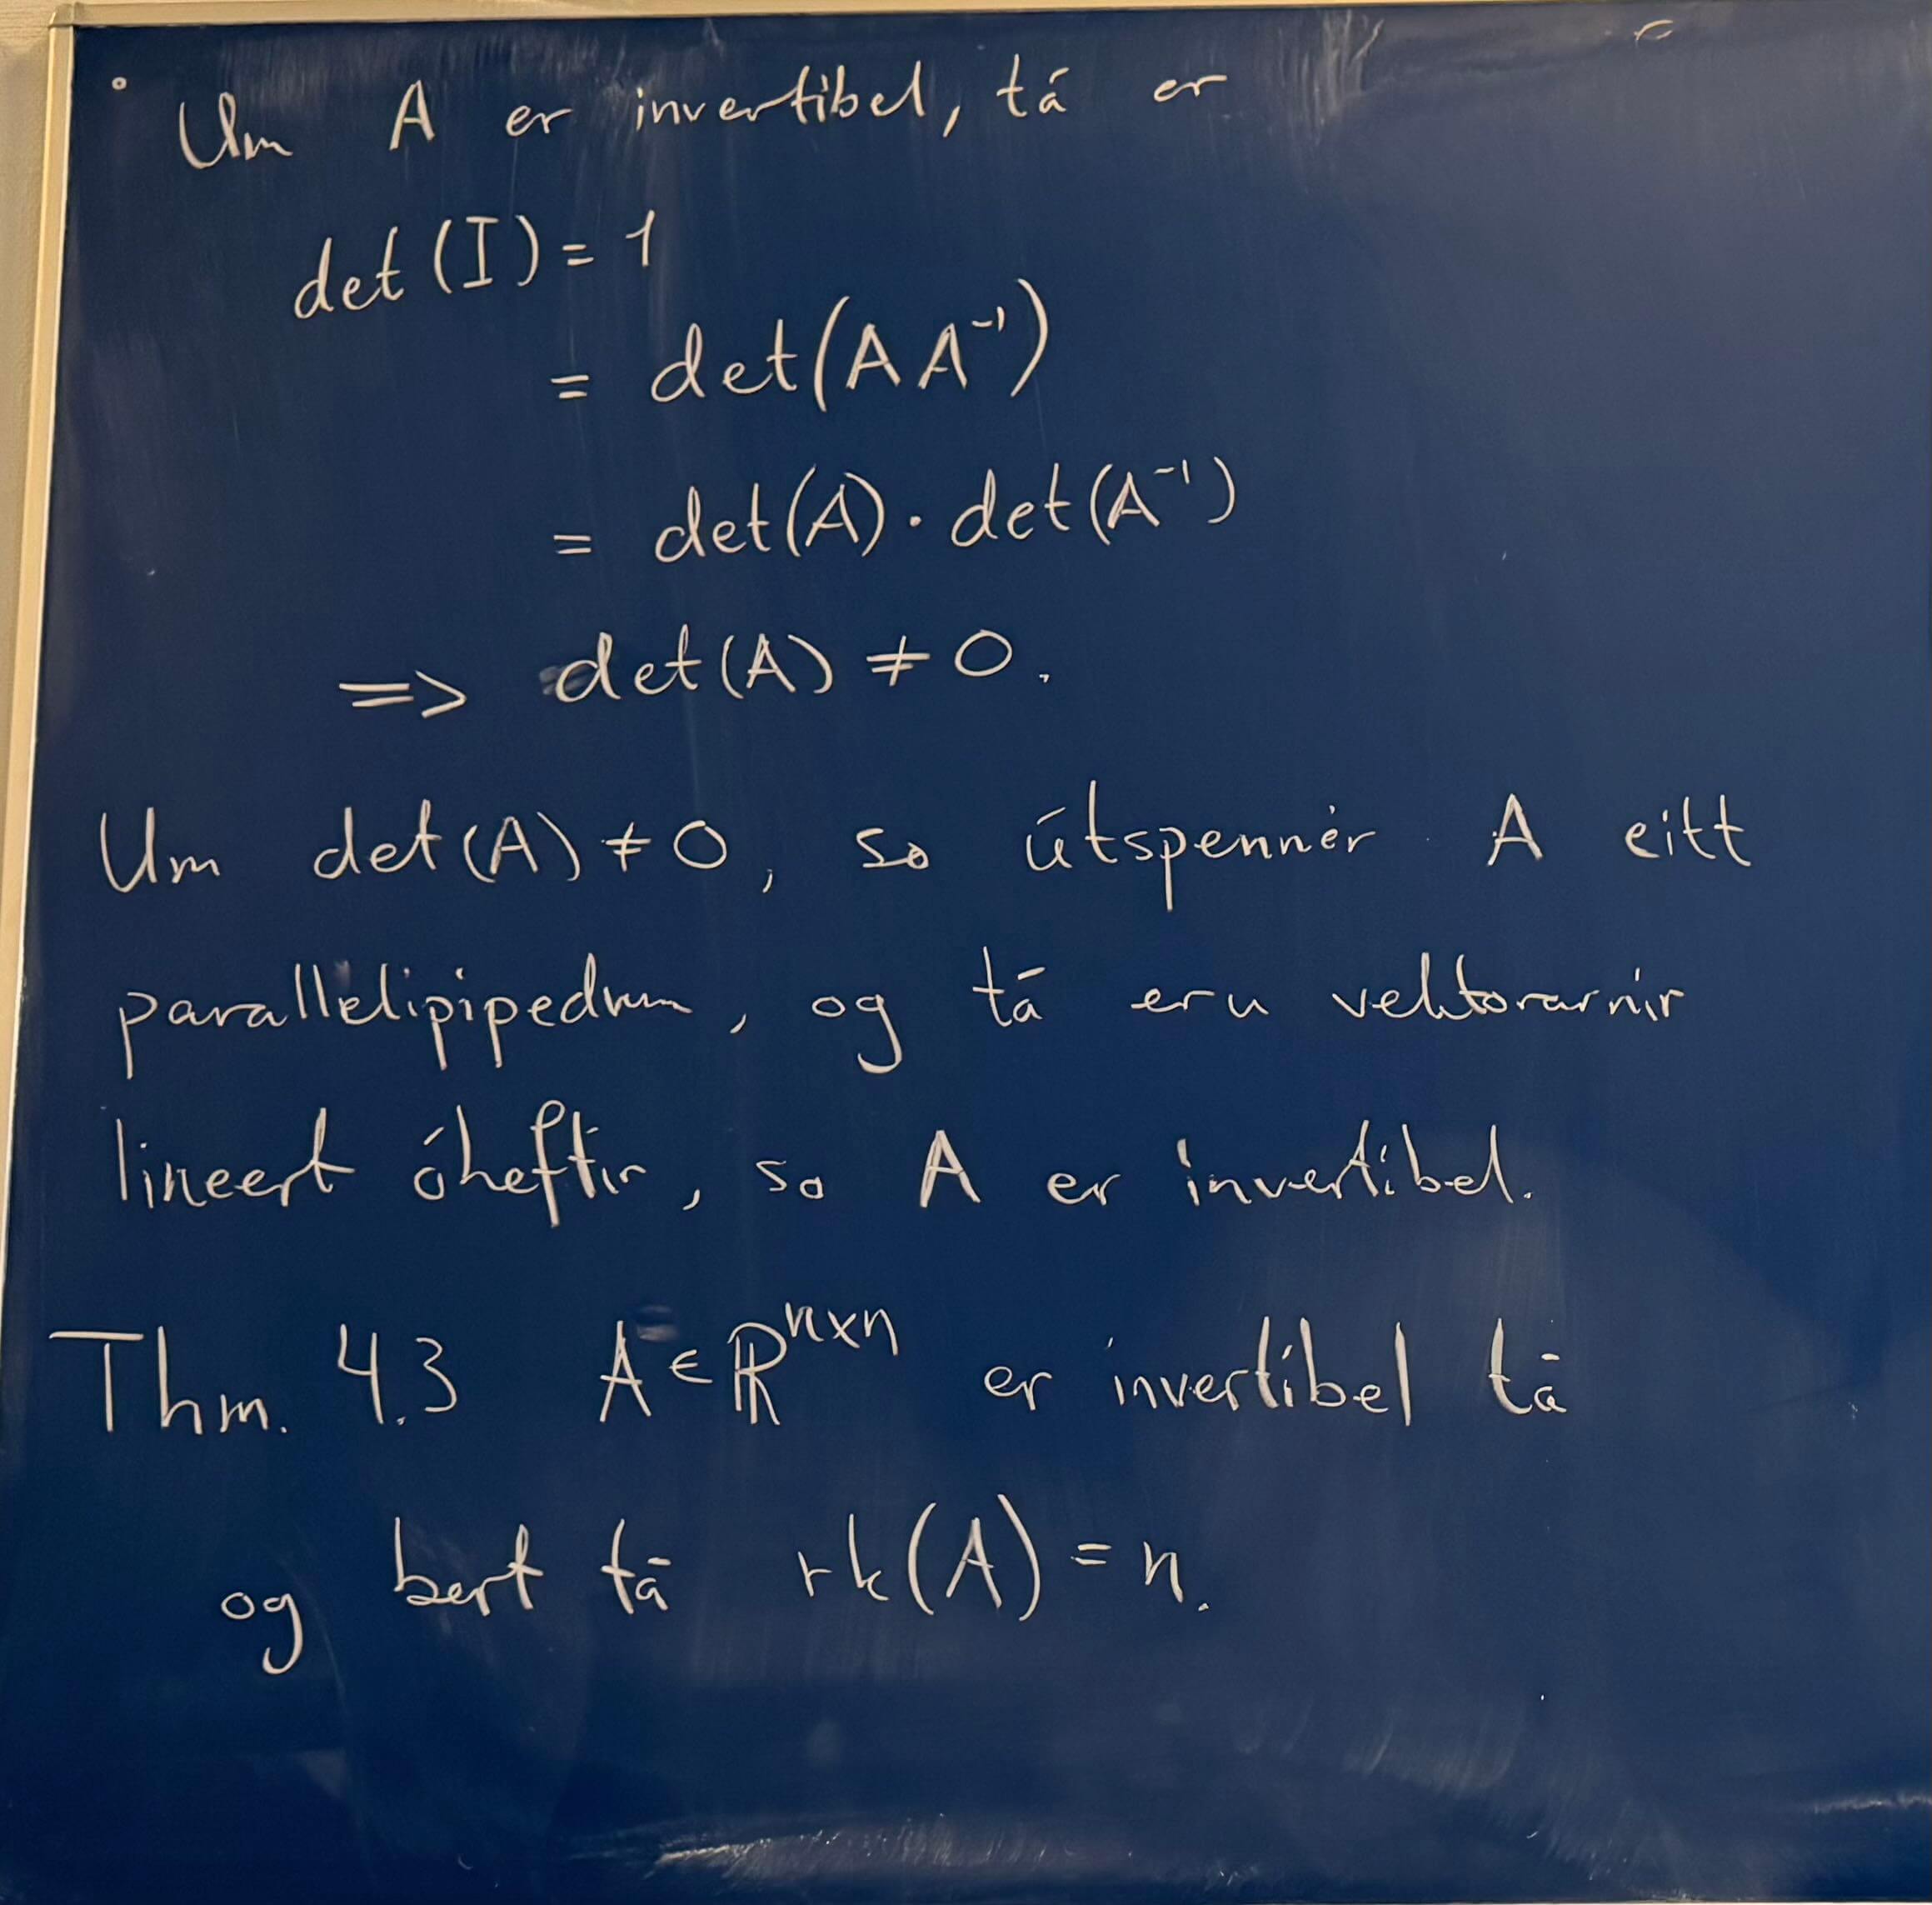 ° Um A er invertibel, tá er
det(I) = 1
= det(AA⁻¹)
= det(A) · det(A⁻¹)
=> det(A) ≠ 0.
Um det(A) ≠ 0, so útspennir A eitt
parallelipipedum, og tá eru vektorarnir
lineert óheftir, so A er invertibel.
Thm. 4.3 A ∈ ℝⁿˣⁿ er invertibel tá
og bert tá rk(A) = n.